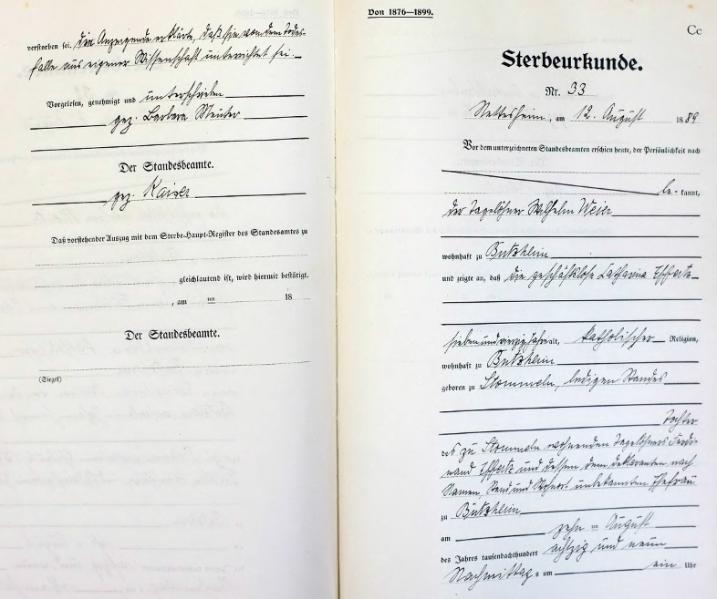 verstorben sei. Die Anzeigende erklärte, daß sie von dem Todes-
falle aus eigener Wissenschaft unterrichtet sei.
Vorgelesen, genehmigt und unterschrieben
gez. Barbara
Der Standesbeamte.
gez. Kaiser
Daß vorstehender Auszug mit dem Sterbe-Haupt-Register des Standesamtes zu
gleichlautend ist, wird hiermit bestätigt.
, am ten 18
Der Standesbeamte.
(Siegel)
Von 1876—1899.
Cc
Sterbeurkunde.
Nr. 33
Nettesheim, am 12. August 1889
Vor dem unterzeichneten Standesbeamten erschien heute, der Persönlichkeit nach
be- kannt,
der Tagelöhner Wilhelm Weier
wohnhaft zu Butzheim
und zeigte an, daß die geschäftslose Catharina Effertz
sieben und vierzig Jahre alt, katholischer Religion,
wohnhaft zu Butzheim
geboren zu Stommeln, ledigen Standes
Tochter
des zu Stommeln wohnenden Tagelöhners Ferdi-
nand Effertz und dessen dem Deklaranten nach
Namen, Stand und Wohnort unbekannten Ehefrau
zu Butzheim
am zehn August
des Jahres tausendachthundert achtzig und neun
Nachmittags um ein Uhr